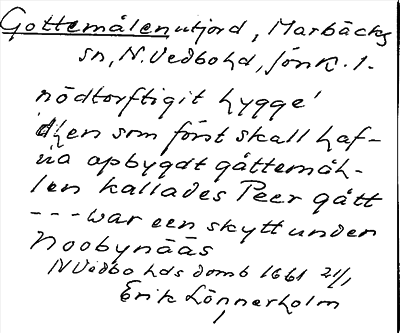 Gottemålen utjord, Marbäcks
sn, N. Vedbo hd, Jönk. l.
nödtorftigit hygge'
dhen som först skall haf-
ua opbygdt gåttemåh-
len kallades Peer gått
--- war een skytt under
Noobynääs
N Vedbo hds domb 1661 21/1
Erik Lönnerholm